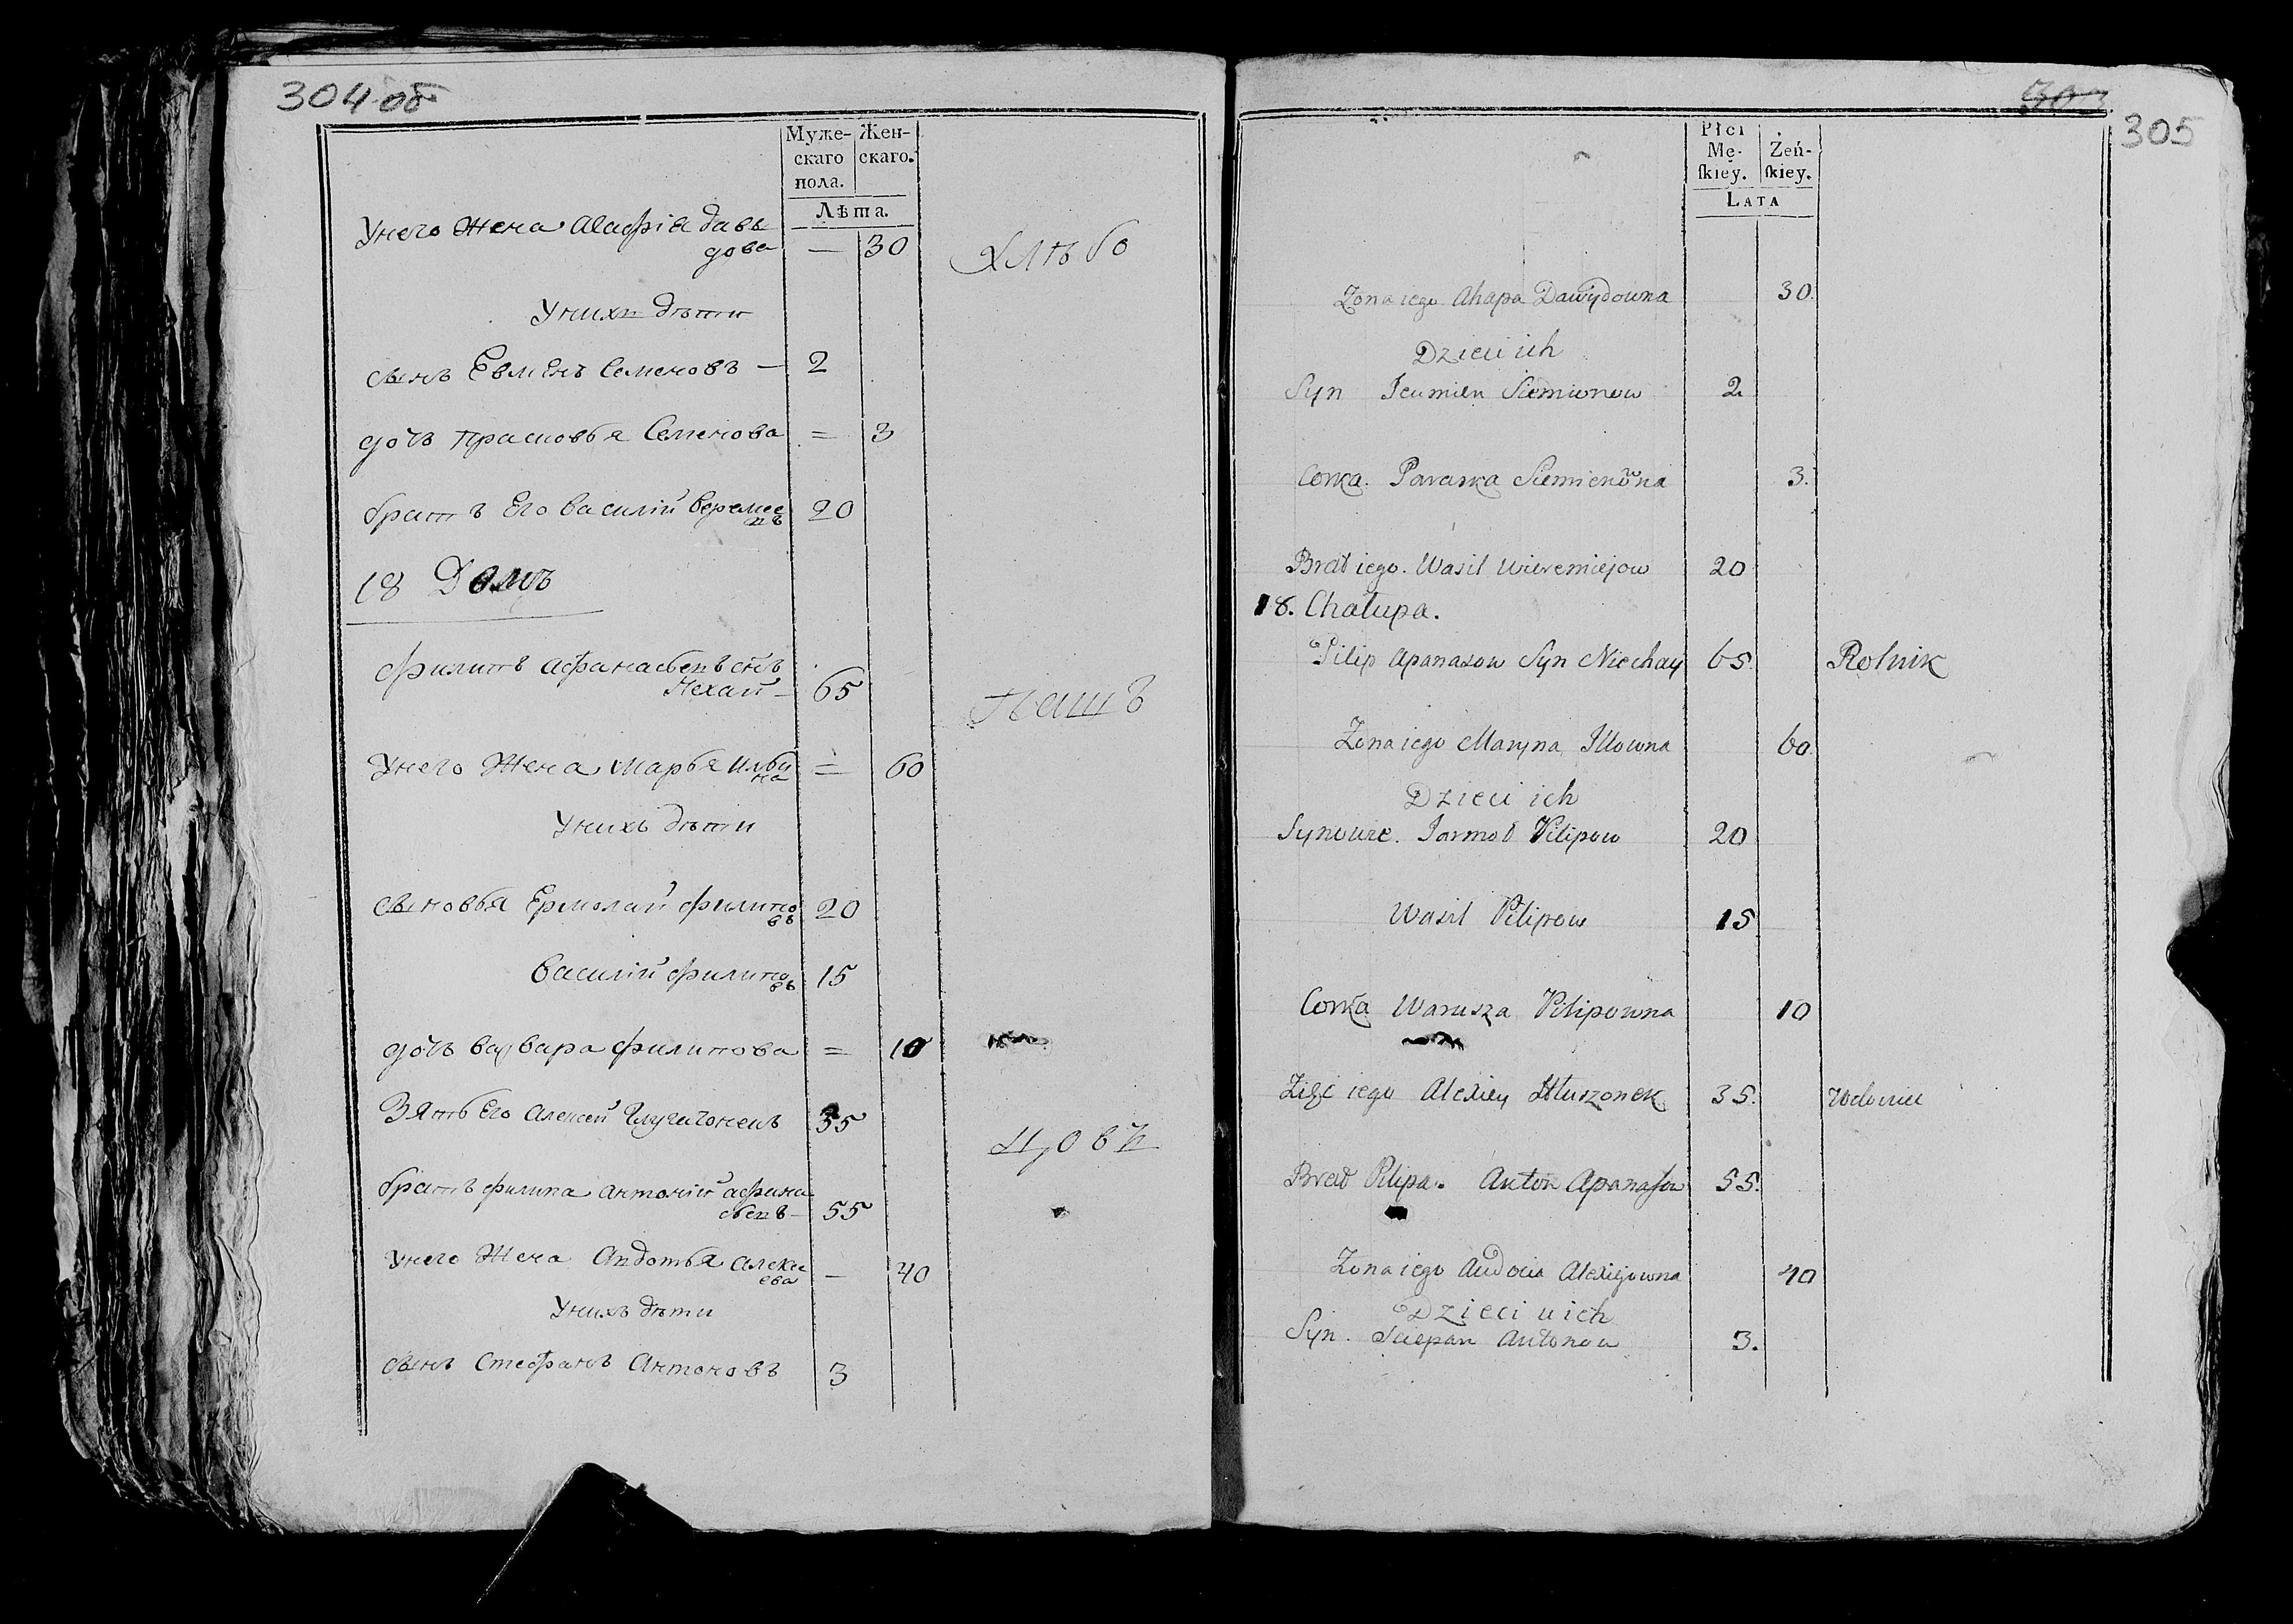 304 об
Муже-
скаго
пола.
Жен-
скаго.
Лѣта.
У него жена Агафія Давы
дова — 30
Хлѣбо
У нихъ дѣти
сынъ Евменъ Семеновъ — 2
дочь Прасковья Семенова = 3
братъ Его Василій Веремее
въ 20
18 Домъ
Филипъ Афанасьевъ снъ
Нехай — 65
пашъ
У него Жена Марья Ильи
на = 60
У нихъ дѣти
сыновья Ермолай Филипо
въ 20
Василій Филипо
въ 15
дочь Варвара Филипова = 10
Зять Его Алексей 35
братъ Филипа Антоній Афана
сьевъ — 55
У него Жена Авдотья Алексе
ева — 40
У нихъ дѣти
сынъ Стефанъ Антоновъ 3
305
Płci
Mę-
ſkiey.
Żeń-
ſkiey.
Lata
Zona iego Ahapa Dawydowna 30.
Dzieci ich
Syn Jeumien Siemionow 2.
Corka. Paraska Siemionowna 3.
Brat iego. Wasil Wieremiejow 20
18. Chałupa.
Pilip Apanasow Syn Niechay 65. Rolnik
Zona iego Maryna Illowna 60.
Dzieci ich
Synowie. Jarmoł Pilipow 20
Wasil Pilipow 15
Corka Warusza Pilipowna 10
Zięć iego Alexiey Hłuszonek 35. Wdowiec
Brat Pilipa. Anton Apanaſow 55.
Zona iego Audocia Alexiejowna 40
Dzieci u ich
Syn. Sciepan Antonow 3.